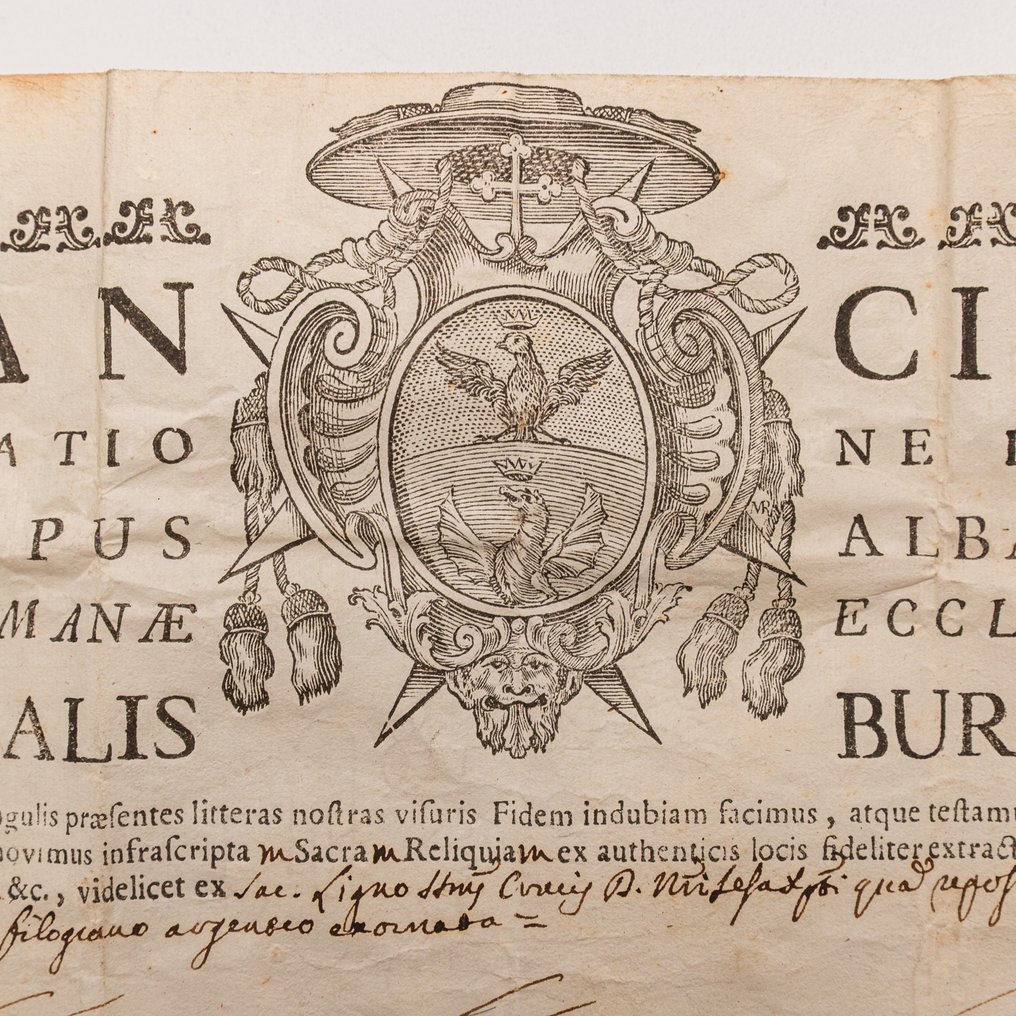 AN CI
ATIO NE
PUS ALBA
MANÆ ECCL
ALIS BUR
gulis præſentes litteras noſtras viſuris Fidem indubiam facimus, atque teſtamu
ovimus infraſcriptam Sacram Reliquiam ex authenticis locis fideliter extract
&c., videlicet ex Sac. Ligno Crucis D. qua repos
filograno argenteo exornata =